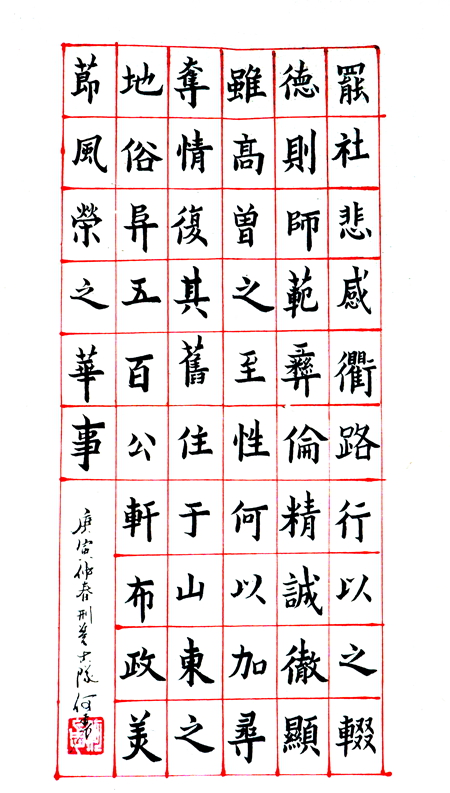 罷社悲感衢路行以之輟
德則師範彝倫精誠徹顯
雖髙曾之至性何以加尋
奪情復其舊住于山東之
地俗异五百公軒布政美
莭風榮之華事
庚寅仲春刑